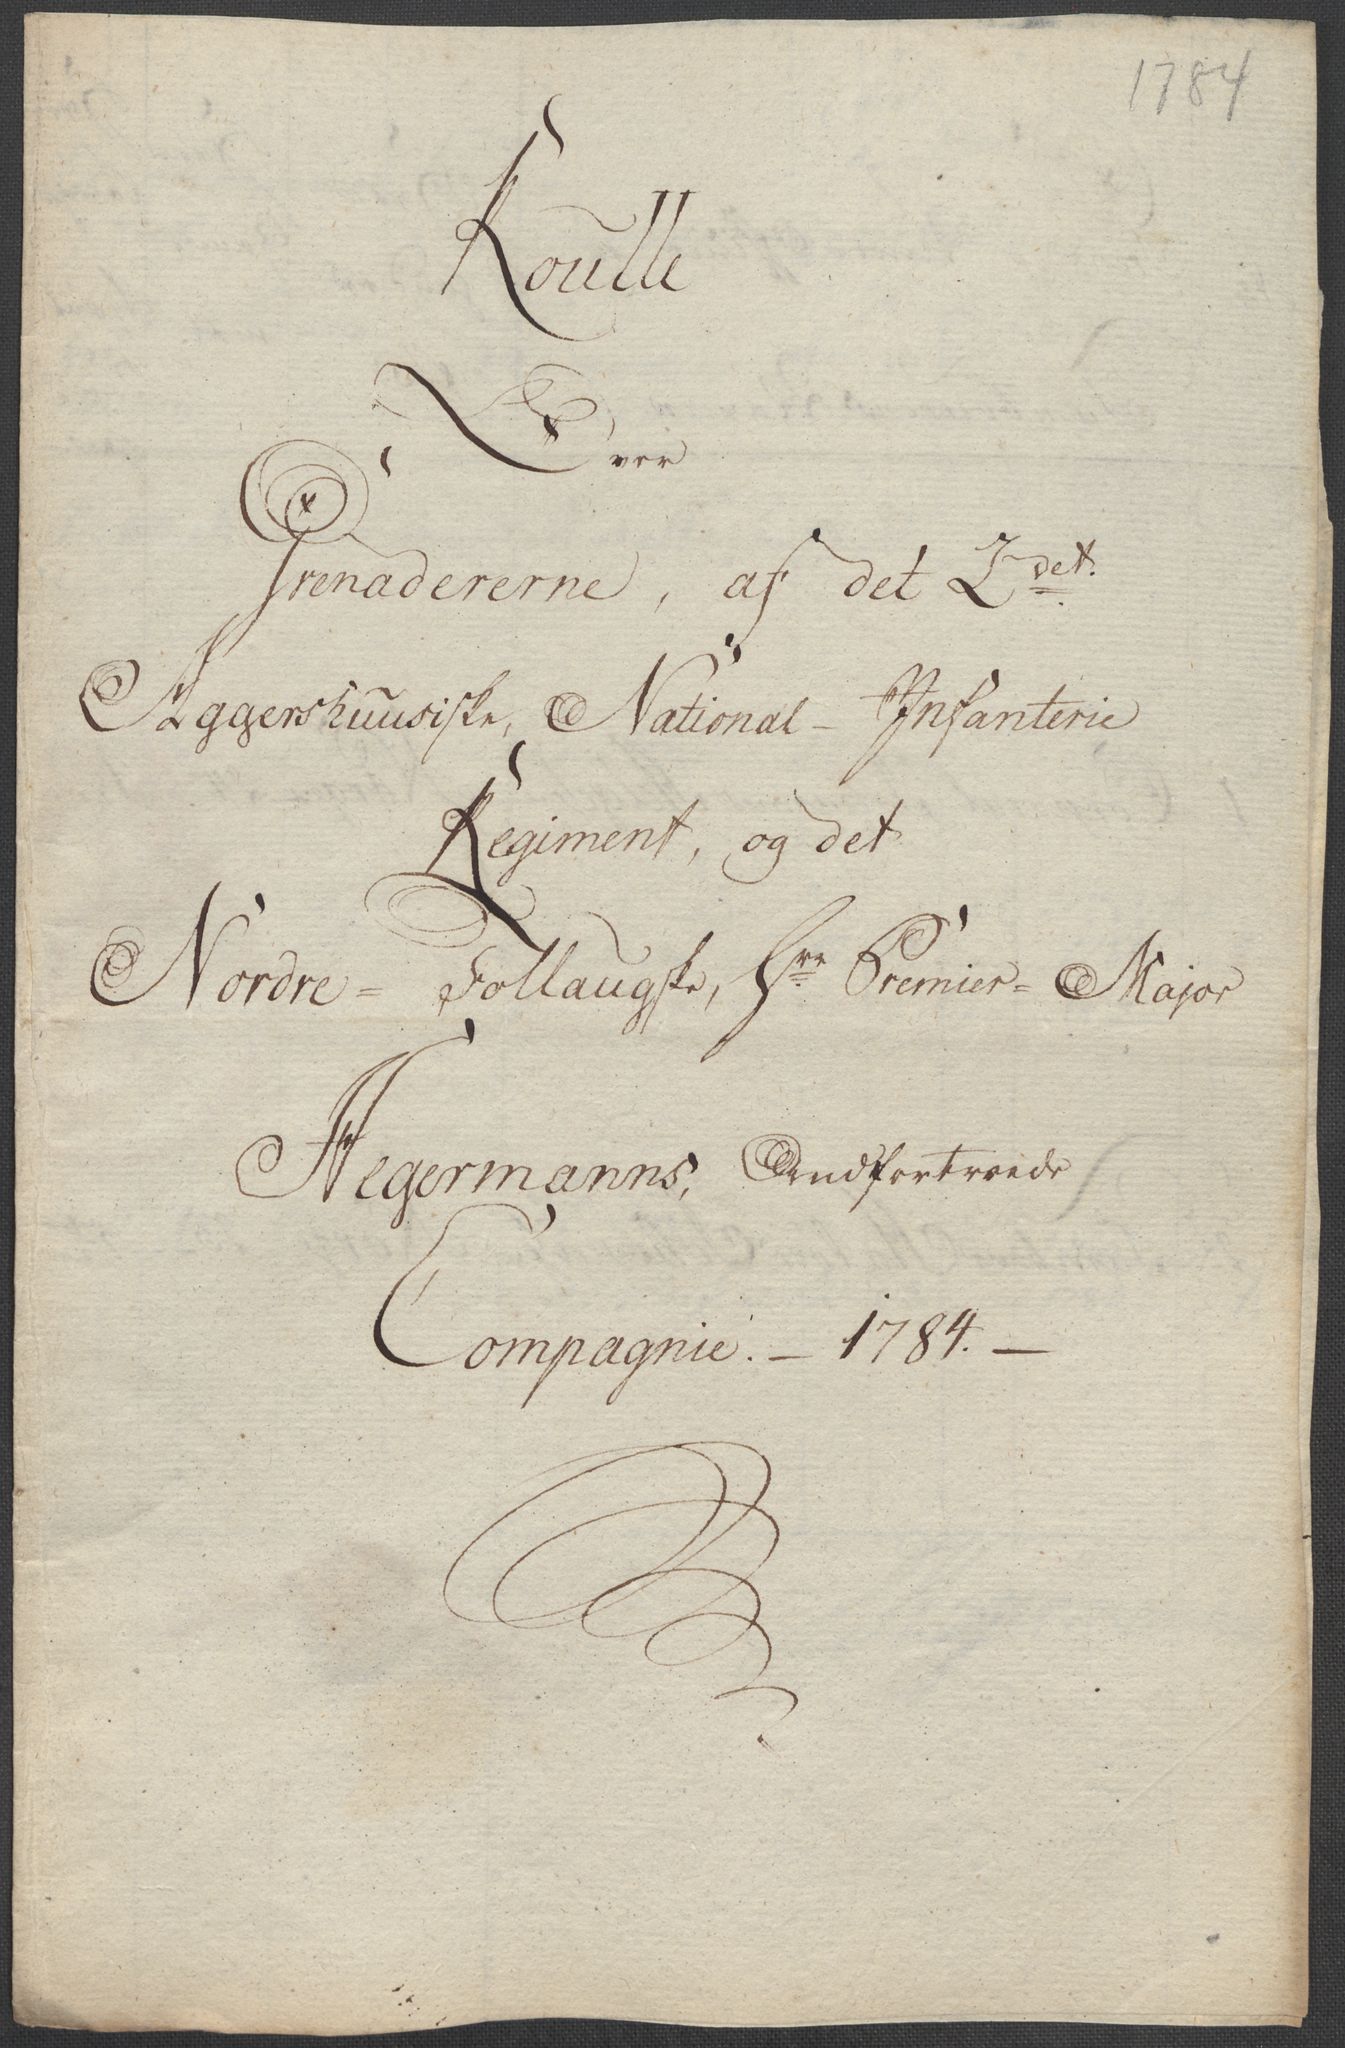 1784
Roulle
Over
Grenadererne, af det 2det.
Aggershuusiske, National- Infanterie
Regiment, og det
Nordre= Follaugske, Hre Premier= Major
Hegermanns, Andfortroede
Compagnie. — 1784. —